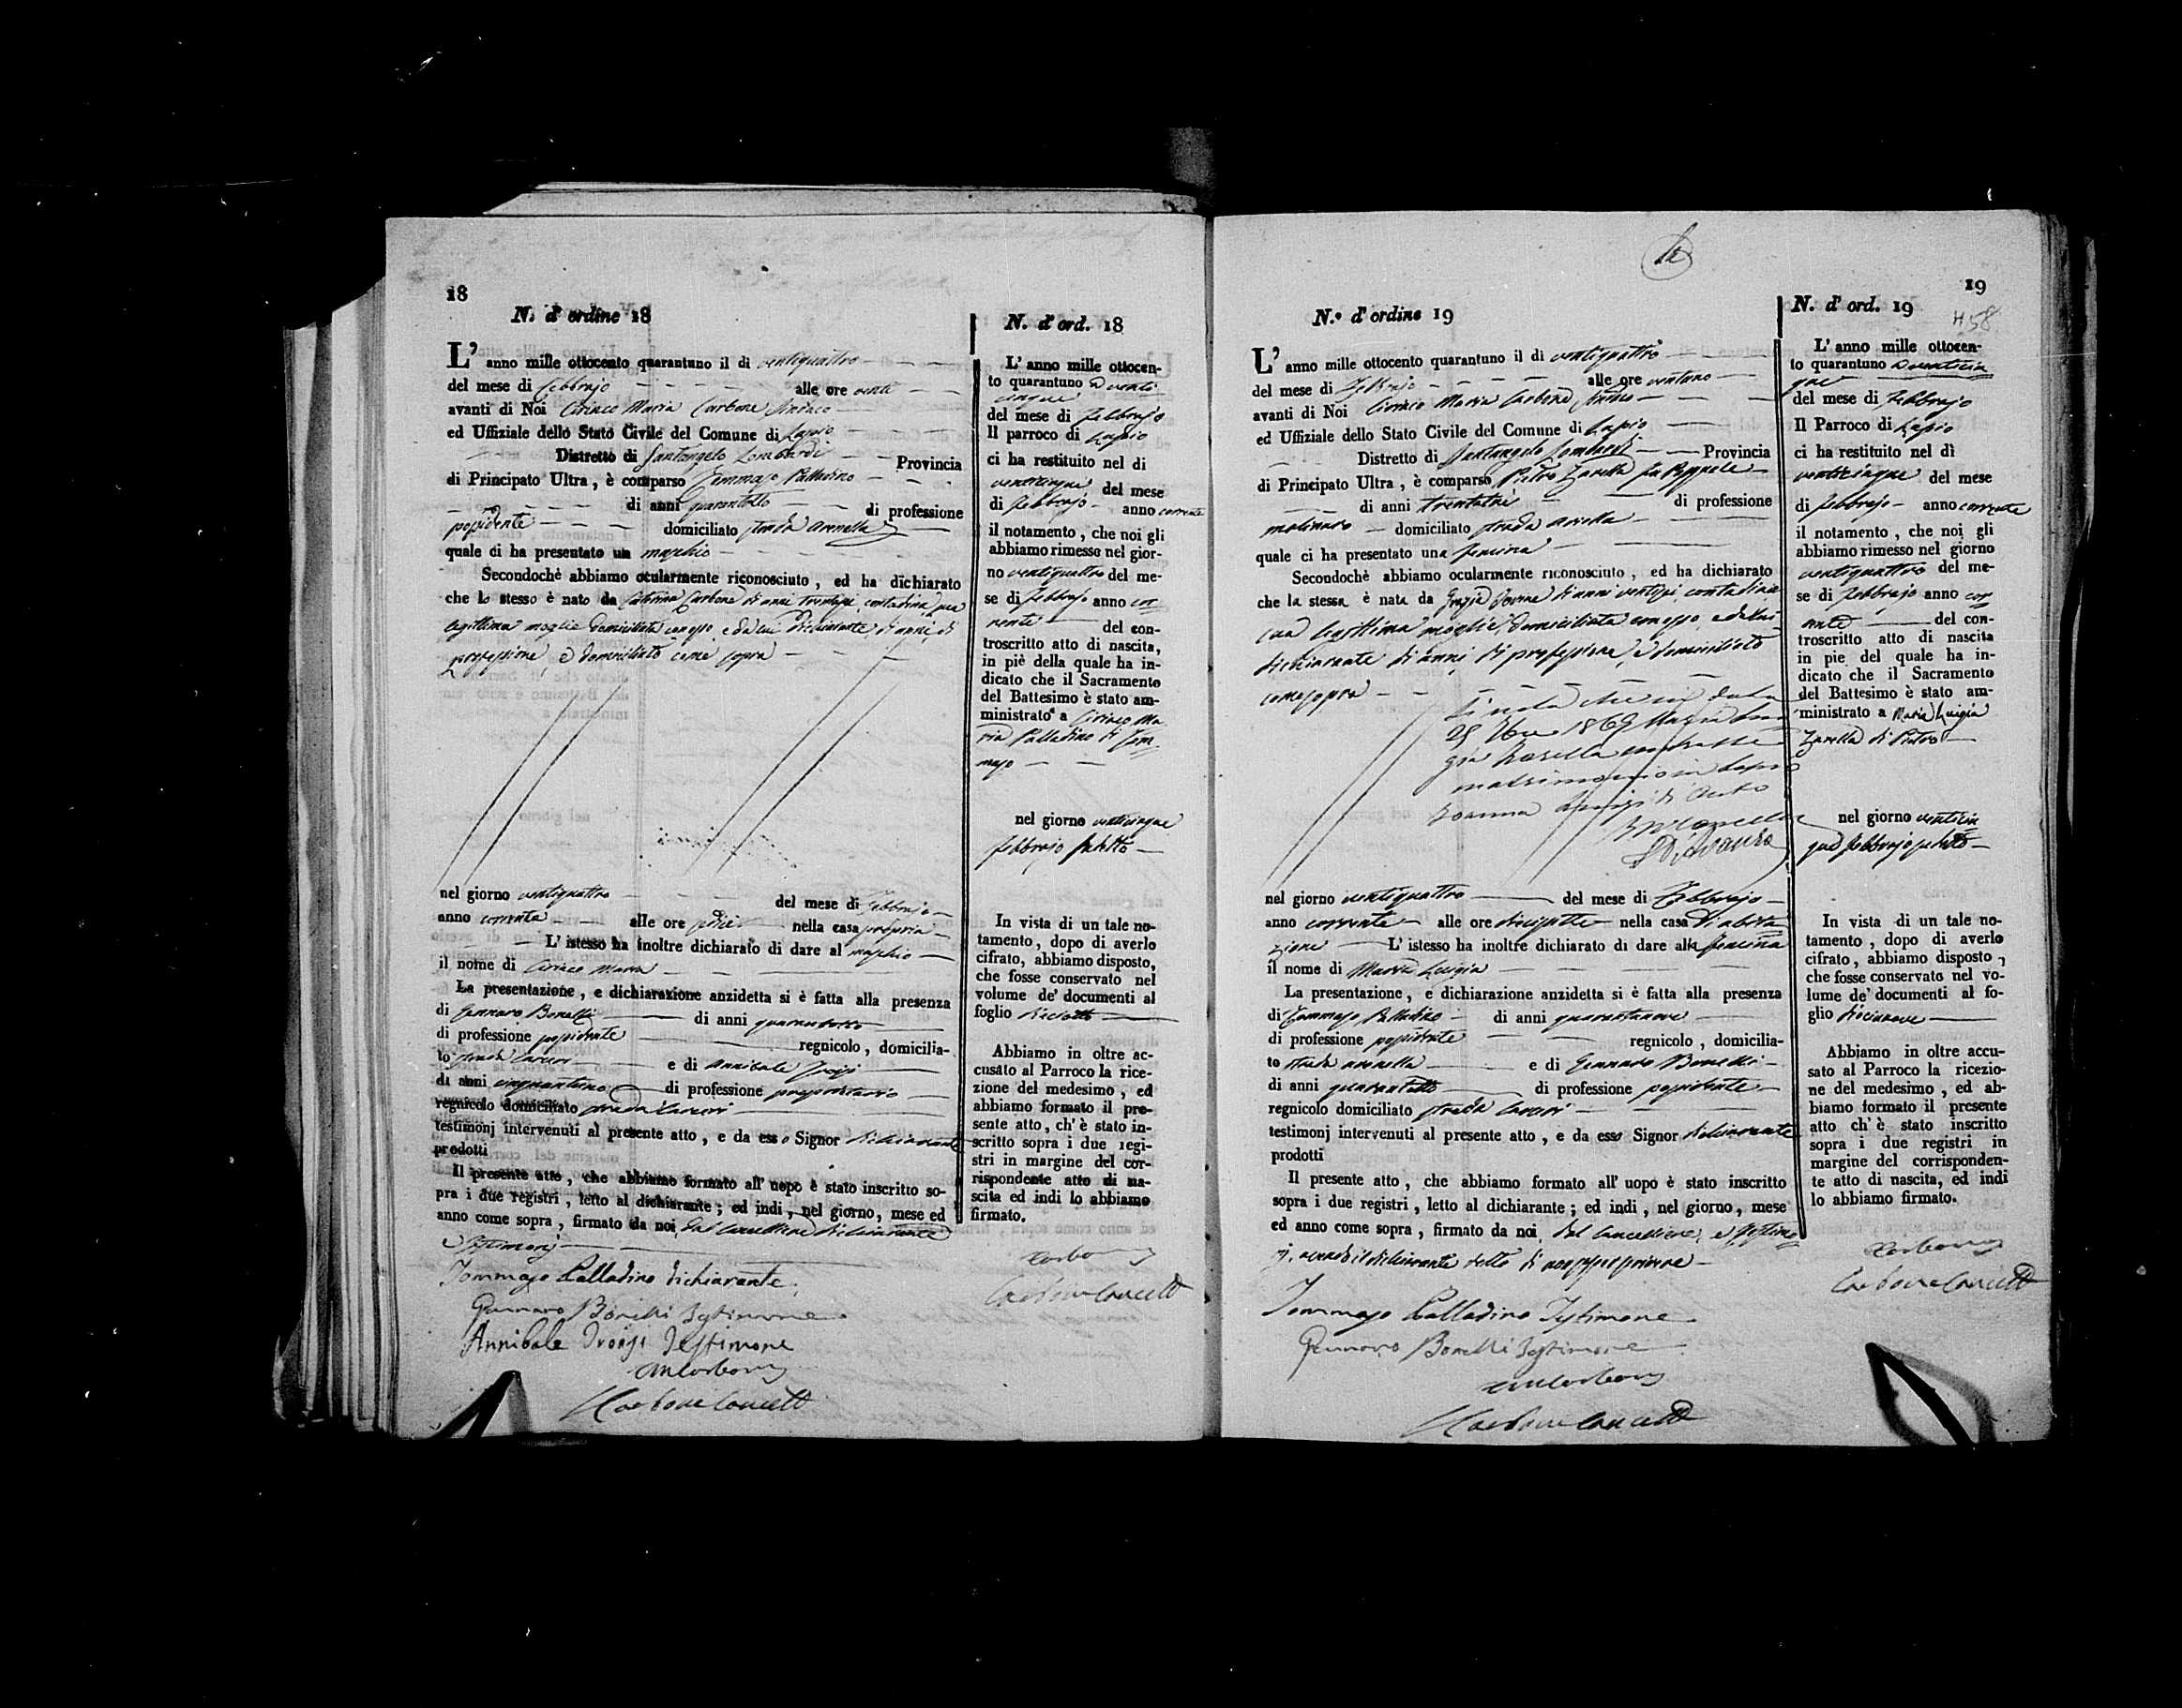 18
N. d' ordine 18
L' anno mille ottocento quarantuno il di ventiquattro
del mese di febbrajo alle ore venti
avanti di Noi Ciriaco Maria Carbone Sindaco
ed Uffiziale dello Stato Civile del Comune di Lapio
Distretto di Santangelo Lombardi Provincia
di Principato Ultra, è comparso Tommaso Palladino
di anni quarantotto di professione
possidente domiciliato strada Arenella
quale ci ha presentato un maschio
Secondochè abbiamo ocularmente riconosciuto, ed ha dichiarato
che lo stesso è nato da Caterina Carbone di anni trentasei, contadina sua
legittima moglie domiciliata con esso, e da lui dichiarante di anni di
professione e domiciliato come sopra
nel giorno ventiquattro del mese di febbrajo
anno corrente alle ore sedici nella casa propria
L' istesso ha inoltre dichiarato di dare al maschio
il nome di Ciriaco Maria
La presentazione, e dichiarazione anzidetta si è fatta alla presenza
di Gennaro Bonelli di anni quarantotto
di professione possidente regnicolo, domicilia-
to strada e di Annibale
di anni cinquantuno di professione proprietario
regnicolo domiciliato strada
testimonj intervenuti al presente atto, e da esso Signor dichiarante
prodotti
Il presente atto, che abbiamo formato all' uopo è stato inscritto so-
pra i due registri, letto al dichiarante; ed indi, nel giorno, mese ed
anno come sopra, firmato da noi, dal Cancelliere dichiarante
e testimonj
Tommaso Palladino dichiarante
Gennaro Bonelli Testimone
Annibale Testimone
Carbone Cancell
N. d' ord. 18
L' anno mille ottocen-
to quarantuno a venti
cinque
del mese di febbrajo
Il parroco di Lapio
ci ha restituito nel di
venticinque del mese
di febbrajo anno corrente
il notamento, che noi gli
abbiamo rimesso nel gior-
no ventiquattro del me-
se di febbrajo anno cor
rente del con-
troscritto atto di nascita,
in piè della quale ha in-
dicato che il Sacramento
del Battesimo è stato am-
ministrato a Ciriaco Ma
ria Palladino di Tom
maso
nel giorno venticinque
febbrajo suddetto
In vista di un tale no-
tamento, dopo di averlo
cifrato, abbiamo disposto,
che fosse conservato nel
volume de' documenti al
foglio diciotto
Abbiamo in oltre ac-
cusato al Parroco la rice-
zione del medesimo, ed
abbiamo formato il pre-
sente atto, ch' è stato in-
scritto sopra i due regi-
stri in margine del cor-
rispondente atto di na-
scita ed indi lo abbiamo
firmato.
Carbone
Carbone Cancell
19
458
N.° d' ordine 19
L' anno mille ottocento quarantuno il di ventiquattro
del mese di febbrajo alle ore ventuno
avanti di Noi Ciriaco Maria Carbone Sindaco
ed Uffiziale dello Stato Civile del Comune di Lapio
Distretto di Santangelo Lombardi Provincia
di Principato Ultra, è comparso Pietro Zarella fu
di anni trentatrè di professione
molinaro domiciliato strada
quale ci ha presentato una femina
Secondochè abbiamo ocularmente riconosciuto, ed ha dichiarato
che la stessa è nata da Grazia di anni ventisei, contadina
sua legittima moglie, domiciliata con esso, e da lui
dichiarante di anni, di professione, e domiciliato
come sopra
Si nota che in data
1869 Maria Lui
gia Zarella contrasse
matrimonio in Lapio
nel giorno ventiquattro del mese di Febbrajo
anno corrente alle ore diciasette nella casa di abita
zione L' istesso ha inoltre dichiarato di dare alla femina
il nome di Maria Luigia
La presentazione, e dichiarazione anzidetta si è fatta alla presenza
di Tommaso Palladino di anni quarantanove
di professione possidente regnicolo, domicilia-
to strada Arenella e di Gennaro Bonelli
di anni quarantotto di professione possidente
regnicolo domiciliato strada
testimonj intervenuti al presente atto, e da esso Signor dichiarante
prodotti
Il presente atto, che abbiamo formato all' uopo è stato inscritto
sopra i due registri, letto al dichiarante; ed indi, nel giorno, mese
ed anno come sopra, firmato da noi, dal Cancelliere, e testimo
nj, avendo il dichiarante detto di non sapere scrivere
Tommaso Palladino Testimone
Gennaro Bonelli Testimone
Carbone Cancell
N. d' ord. 19
L' anno mille ottocen-
to quarantuno a venticin
que
del mese di febbrajo
Il Parroco di Lapio
ci ha restituito nel dì
venticinque del mese
di febbrajo anno corrente
il notamento, che noi gli
abbiamo rimesso nel giorno
ventiquattro del me-
se di febbrajo anno cor
rente del con-
troscritto atto di nascita
in pie del quale ha in-
dicato che il Sacramento
del Battesimo è stato am-
ministrato a Maria Luigia
Zarella di Pietro
nel giorno venticin
que febbrajo suddetto
In vista di un tale no-
tamento, dopo di averlo
cifrato, abbiamo disposto,
che fosse conservato nel vo-
lume de' documenti al fo-
glio diciannove
Abbiamo in oltre accu-
sato al Parroco la ricezio-
ne del medesimo, ed ab-
biamo formato il presente
atto ch' è stato inscritto
sopra i due registri in
margine del corrisponden-
te atto di nascita, ed indi
lo abbiamo firmato.
Carbone
Carbone Cancell